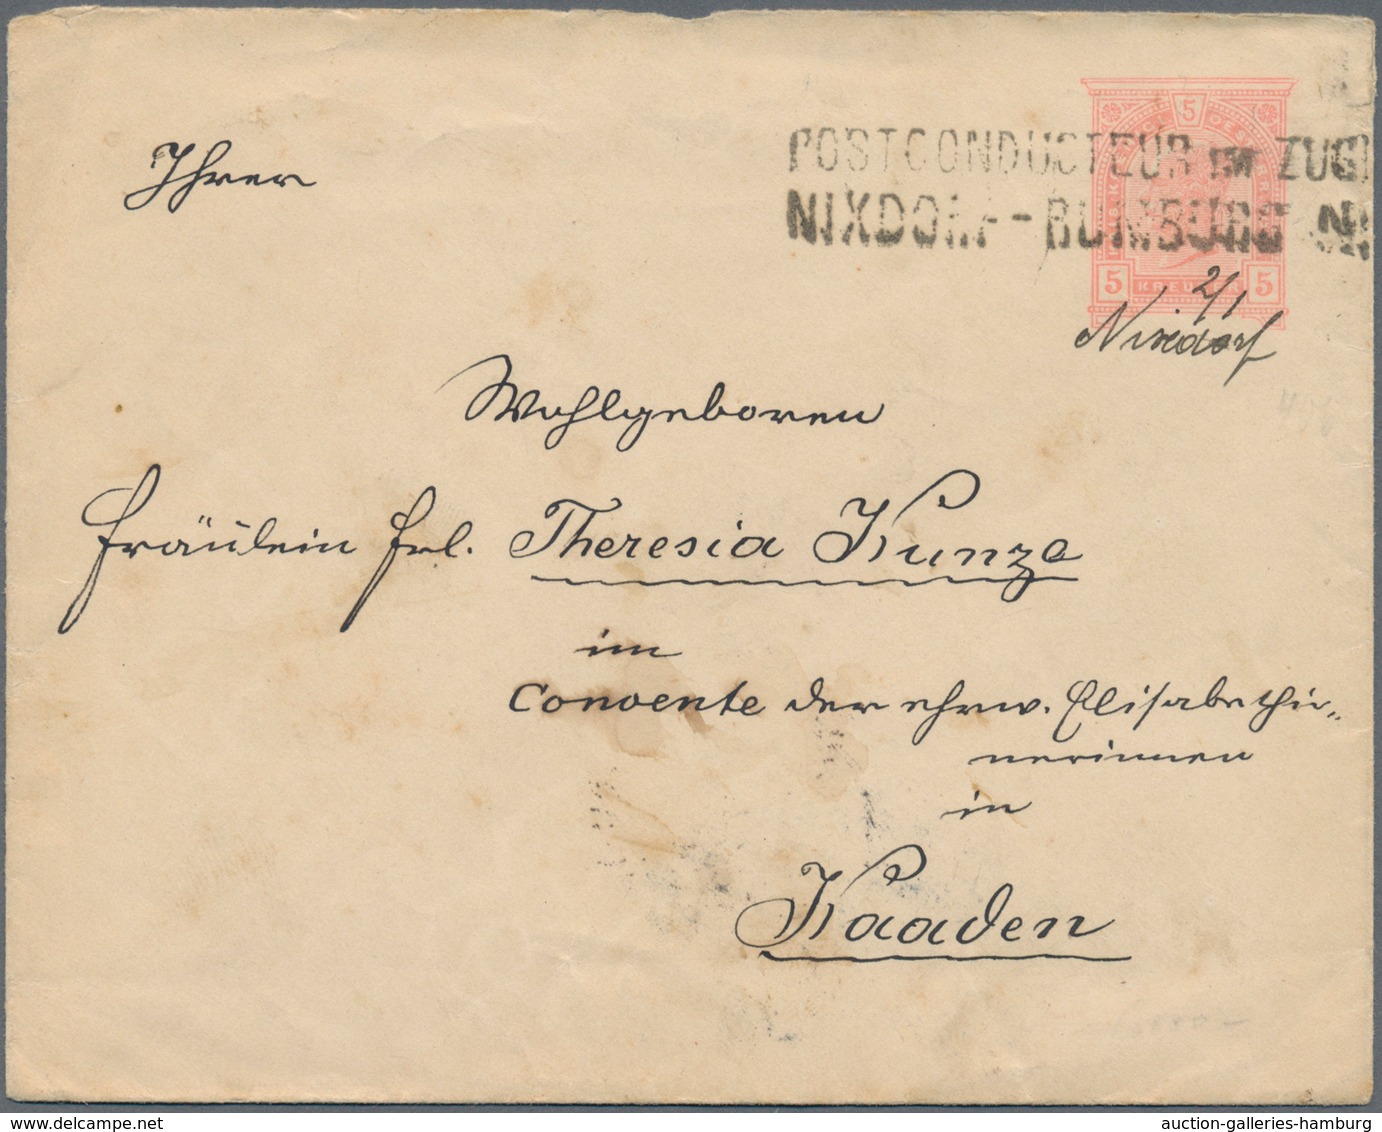 Ihrer
5
POSTCONDUCTEUR IM ZUGE
NIXDORF-RUMBURG N
5 KREUZER 5
2/1
Nixdorf
Wohlgeboren
Fräulein Frl. Theresia Kunze
im
Convente der ehrw. Elisabethi„
nerinnen
in
Kaaden
auction-galleries-hamburg